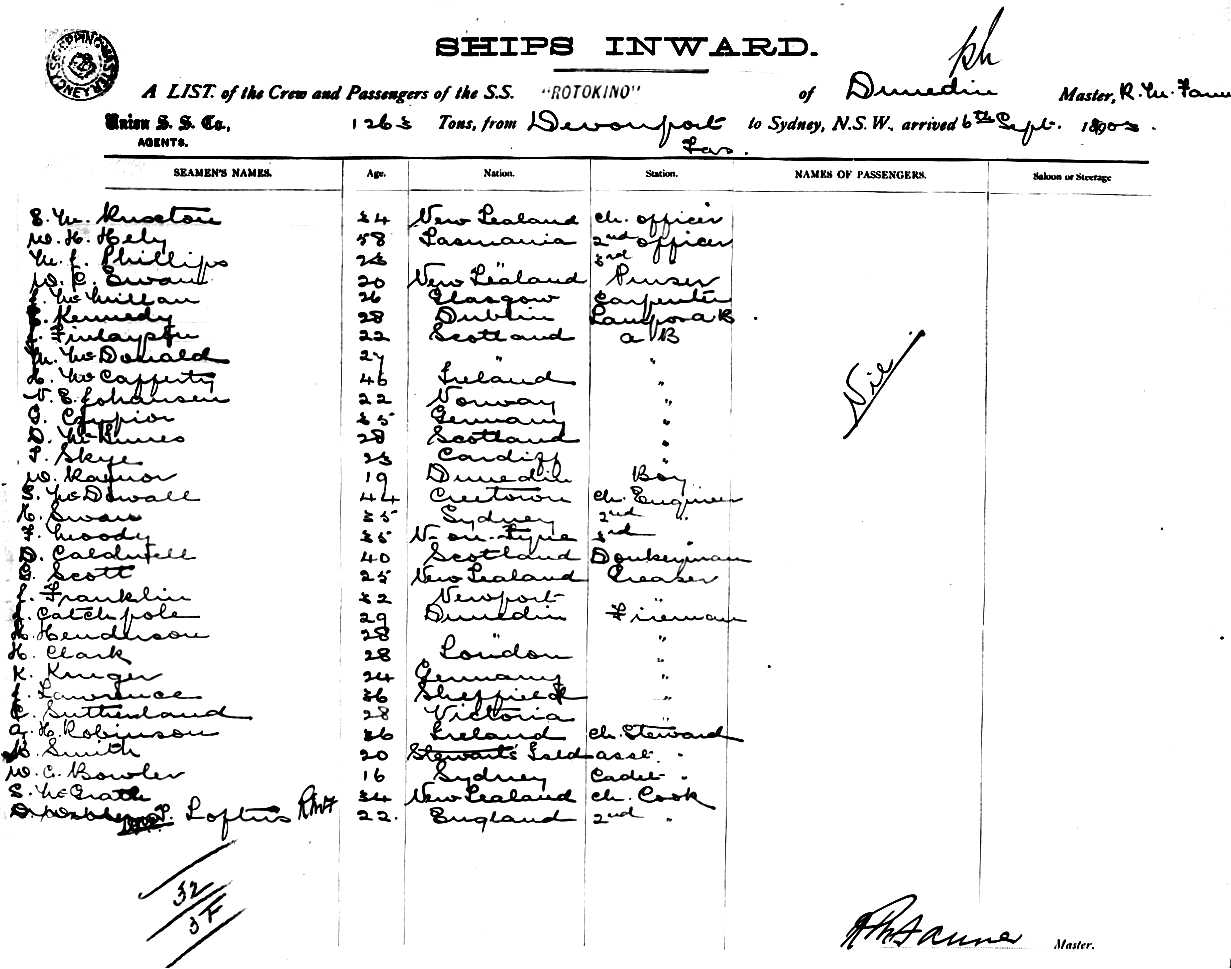 SHIPPING MASTER SYDNEY
ph
SHIPS INWARD.
A LIST. of the Crew and Passengers of the S.S. "ROTOKINO" of Dunedin Master, R. M. Fann
Union S. S. Co., 1263 Tons, from Devonport to Sydney, N.S.W., arrived 6th Sept. 1903.
AGENTS. Tas.
SEAMEN'S NAMES. Age. Nation. Station. NAMES OF PASSENGERS. Saloon or Steerage
34 New Zealand ch. officer
W. H. Hely 58 Tasmania 2nd officer
Phillips 23 " 3rd "
W. C. Swan 20 New Zealand Purser
McMillan 26 Glasgow Carpenter
Kennedy 28 Dublin Lamps & AB
Finlayson 22 Scotland A B
M. McDonald 27 " "
McCafferty 46 Ireland "
Johansen 22 Norway "
35 Germany "
D. McInnes 28 Scotland "
Skye 23 Cardiff "
W. Raynor 19 Dunedin Boy
S. McDowall 44 Creetown ch. Engineer
Swan 35 Sydney 2nd "
Moody 35 N-on-Tyne 3rd "
D. Caldwell 40 Scotland Donkeyman
Scott 25 New Zealand Greaser
Franklin 32 Newport "
Catchpole 29 Dunedin Fireman
Henderson 28 " "
H. Clark 28 London "
K. Kruger 24 Germany "
Lawrence 36 Sheffield "
Sutherland 28 Victoria "
A. H. Robinson 36 Ireland ch. Steward
Smith 20 Stewart's Isld asst. "
W. C. Bowler 16 Sydney Cadet "
S. McGrath 34 New Zealand ch. Cook
Loftus RMF 22. England 2nd "
Nil
32
3F
R M Fanner Master.